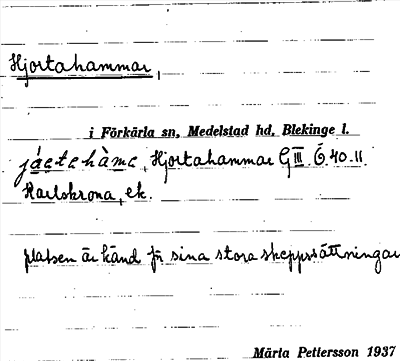 Hjortahammar,
i Förkärla sn, Medelstad hd, Blekinge l.
Hjortahammar G III Ö 40. 11.
Karlskrona, ek.
platsen är känd för sina stora skeppssättningar
Märta Pettersson 1937